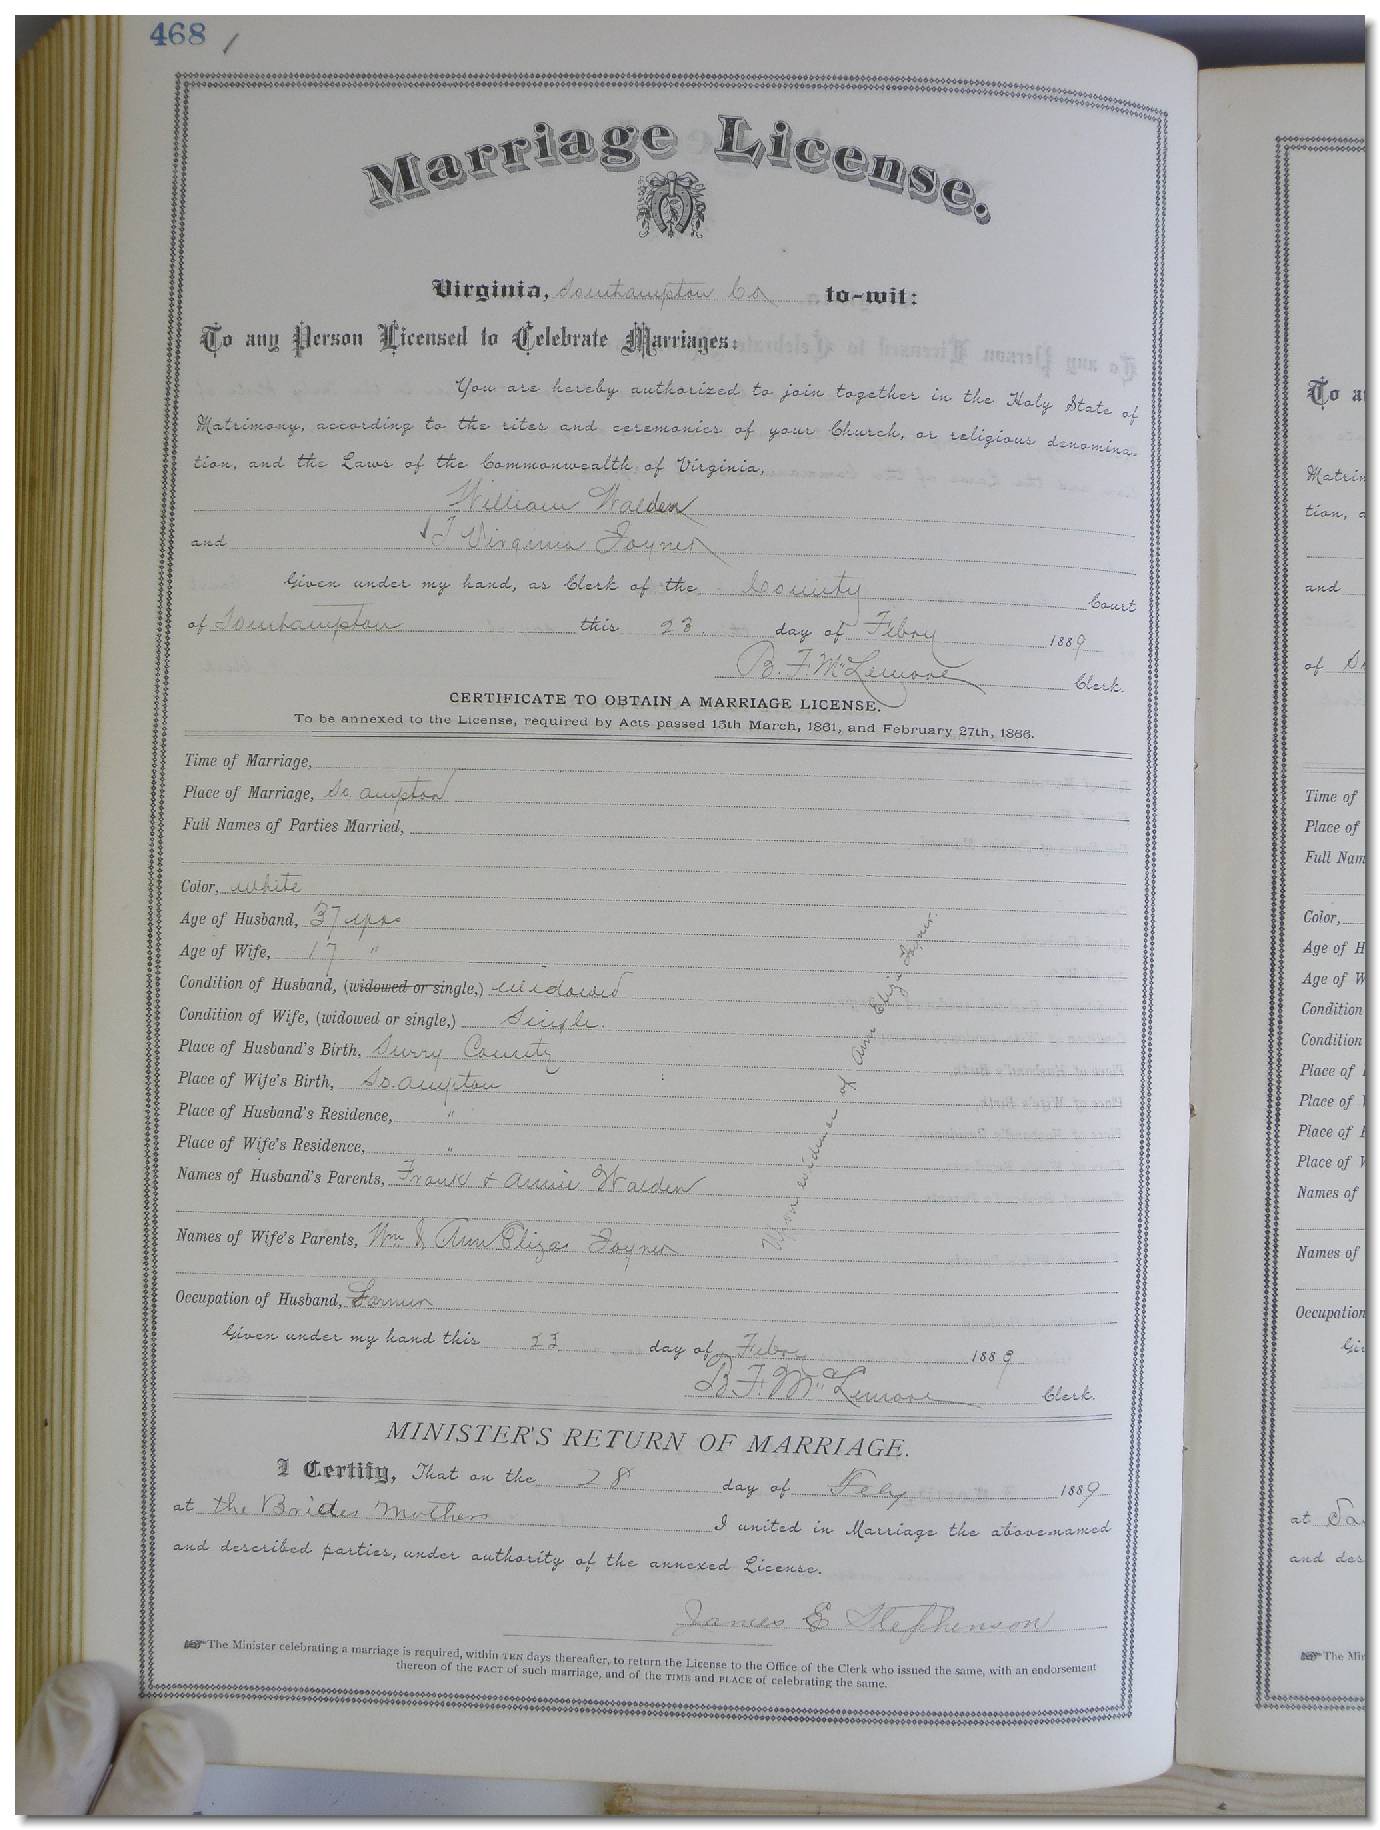 468 /
Marriage License.
Virginia, Southampton Co to-wit:
To any Person Licensed to Celebrate Marriages:
You are hereby authorized to join together in the Holy State of
Matrimony, according to the rites and ceremonies of your Church, or religious denomina-
tion, and the Laws of the Commonwealth of Virginia,
William Walden
and J Virginia Joyner
Given under my hand, as Clerk of the County Court
of Southampton this 23. day of Feby 1889
B. F. McLemore Clerk.
CERTIFICATE TO OBTAIN A MARRIAGE LICENSE.
To be annexed to the License, required by Acts passed 15th March, 1861, and February 27th, 1866.
Time of Marriage,
Place of Marriage, So. ampton
Full Names of Parties Married,
Color, white
Age of Husband, 37 yrs
Age of Wife, 17 "
Condition of Husband, (widowed or single,) widowed
Condition of Wife, (widowed or single,) Single.
Place of Husband's Birth, Surry County
Place of Wife's Birth, So. ampton
Place of Husband's Residence, "
Place of Wife's Residence, "
Names of Husband's Parents, Frank & Annie Walden
Names of Wife's Parents, Wm & Ann Eliza Joyner
Occupation of Husband, Farmer
Upon evidence of Ann Eliza Joyner.
Given under my hand this 23 day of Feby 1889
B. F. McLemore Clerk.
MINISTER'S RETURN OF MARRIAGE.
I Certify, That on the 28 day of Feby 1889
at the Brides Mothers I united in Marriage the above-named
and described parties, under authority of the annexed License.
James E Stephenson
The Minister celebrating a marriage is required, within TEN days thereafter, to return the License to the Office of the Clerk who issued the same, with an endorsement
thereon of the FACT of such marriage, and of the TIME and PLACE of celebrating the same.
To a
Matrim
tion, a
and
of So
Time of
Place of
Full Nam
Color,
Age of H
Age of W
Condition
Condition
Place of
Place of
Place of
Place of W
Names of
Names of
Occupation
Gi
at
and des
The Min